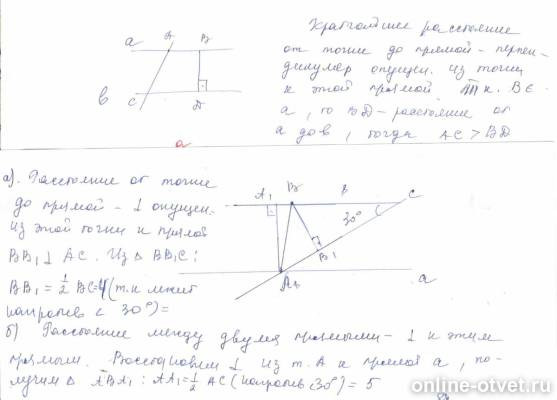 Кратчайшее расстояние
от точки до прямой - перпен-
дикуляр опущен. из точки
к этой прямой. Т.к. В ∈
а, то BD - расстояние от
а до в, тогда AC > BD
а A B
в C D
а
а). Расстояние от точки
до прямой - ⊥ опущен.
из этой точки к прямой
BB₁ ⊥ AC. Из △ BB₁C:
BB₁ = 1/2 BC = 4 (т.к. лежит
напротив < 30°) =
A₁ B в C
30°
B₁
A а
б) Расстояние между двумя прямыми - ⊥ к этим
прямым. Восстановим ⊥ из т. А к прямой а, по-
лучим △ ABA₁: AA₁ = 1/2 AC (напротив < 30°) = 5
online-otvet.ru